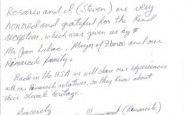 Rosario and I (Steven) are very
honored and grateful for the kind
reception, which was given us by
Mr Jan Lukac, Mayor of Horov and our
Komarcik family.
Back in the USA we will share our experiences
with our Komarcik relatives, so they know about
their Slovak heritage.
Sincerely
(Komarcik)